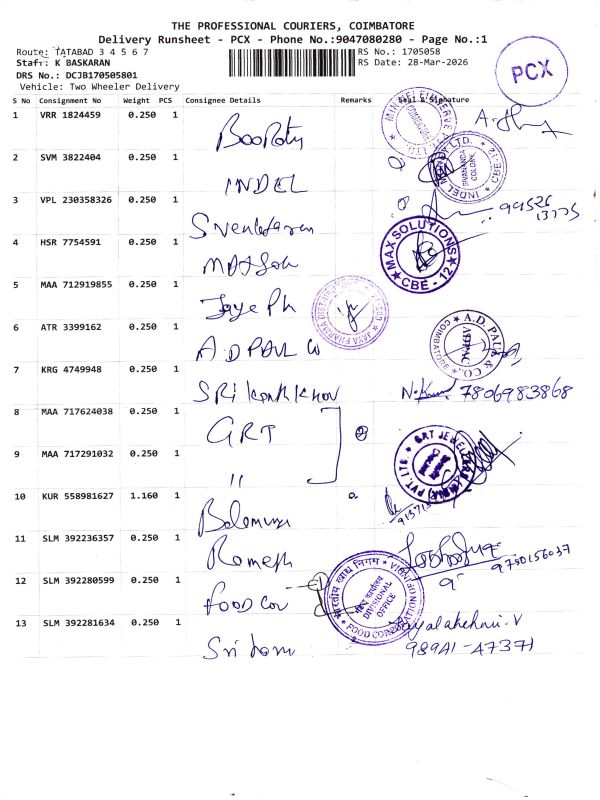 THE PROFESSIONAL COURIERS, COIMBATORE
Delivery Runsheet - PCX - Phone No.:9047080280 - Page No.:1
Route: TATABAD 3 4 5 6 7
Staff: K BASKARAN
DRS No.: DCJB170505801
Vehicle: Two Wheeler Delivery
RS No.: 1705058
RS Date: 28-Mar-2026
PCX
S No Consignment No Weight PCS Consignee Details Remarks Seal & Signature
1 VRR 1824459 0.250 1
2 SVM 3822404 0.250 1 INDEL
3 VPL 230358326 0.250 1
4 HSR 7754591 0.250 1
MAX SOLUTIONS
CBE - 12
5 MAA 712919855 0.250 1 Jaye Ph
6 ATR 3399162 0.250 1 A.D PAUL CO
A.D. PAUL & CO.
COIMBATORE
7 KRG 4749948 0.250 1 7806983868
8 MAA 717624038 0.250 1 GRT
9 MAA 717291032 0.250 1 "
10 KUR 558981627 1.160 1
11 SLM 392236357 0.250 1 Ramesh
9750156037
12 SLM 392280599 0.250 1 FOOD Cor
भारतीय खाद्य निगम
DIVISIONAL
OFFICE
FOOD CORPORATION OF INDIA
13 SLM 392281634 0.250 1 Sri ham
989A1-A7371